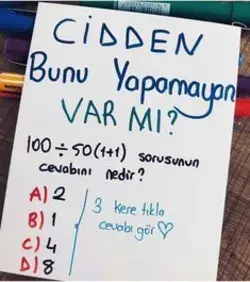 CiDDEN
Bunu Yapamayan
VAR MI?
100÷50(1+1) sorusunun
cevabını nedir?
A) 2
B) 1
C) 4
D) 8
3 kere tıkla
cevabı gör ♡